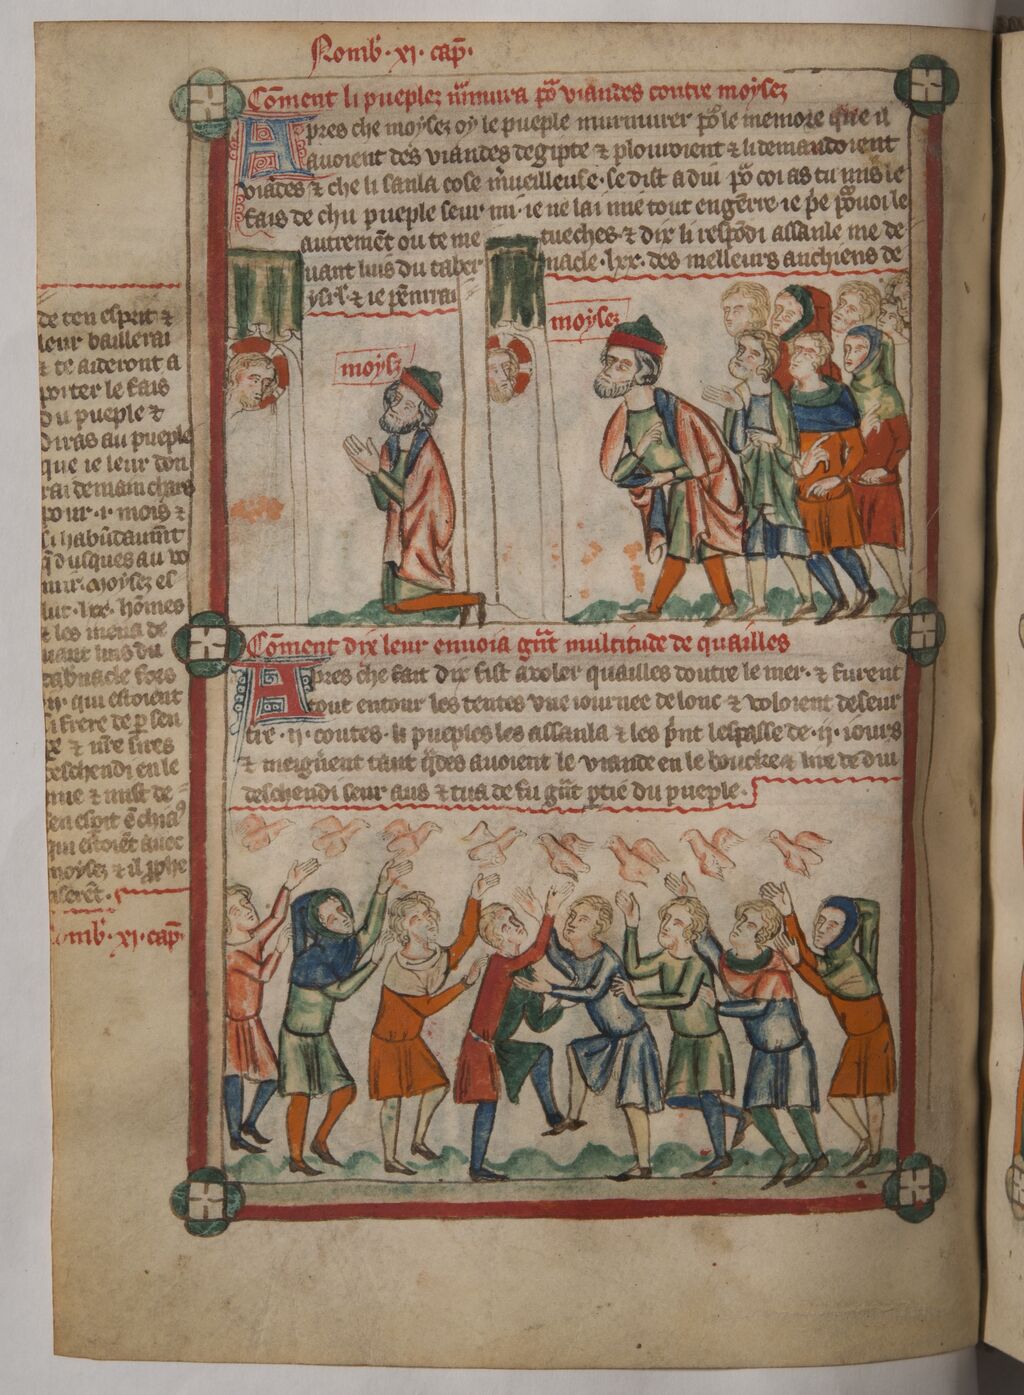 Nomb̃ · xi · cap̃ ·
Cõment li pueplez mũmura põ viandes contre moÿsez
Apres che moÿsez oÿ le pueple murmurer põ le memore que il
auoient des viandes degipte & plouroient & li demandoient
viãdes & che li sanla cose m̃ueilleuse · se dist a diu põ coi as tu mis le
fais de chu pueple seur mi · ie ne lai mie tout engẽrre · ie
autremẽt ou te me tueches · & dix li respõdi assanle me de
uant luis du taber nacle · lxx · des melleurs anchiens de
ysrł · & ie pẽnrai
moysez
moÿsez
de ten esprit &
leur baillerai
& te aideront a
porter le fais
du pueple &
diras au pueple
que ie leur don
rai demain chars
pour · i · mois &
si habũdaum̃t
q̃ dusques au vo
mir · moÿsez es
lut · lxx · hõmes
& les mena de
uant luis du
tabnacle fors
qui estoient
si frere de
& nr̃e sires
deschendi en le
nue & mist de
en
qui estoiẽt auec
moÿsez & il
Nomb̃ · xi · cap̃
Cõment dix leur enuoia gñt multitude de quailles
Apres che fait dix fist avoler quailles doutre le mer · & furent
tout entour les tentes vne iournee de lonc & voloient deseur
tre · ij · coutes · li pueples les assanla & les p̃nt lespasse de · ij · iours
& meigũent tant q̃ des auoient le viande en le boucke lire de diu
deschendi seur aus & tua de fu gñt ptie du pueple ·